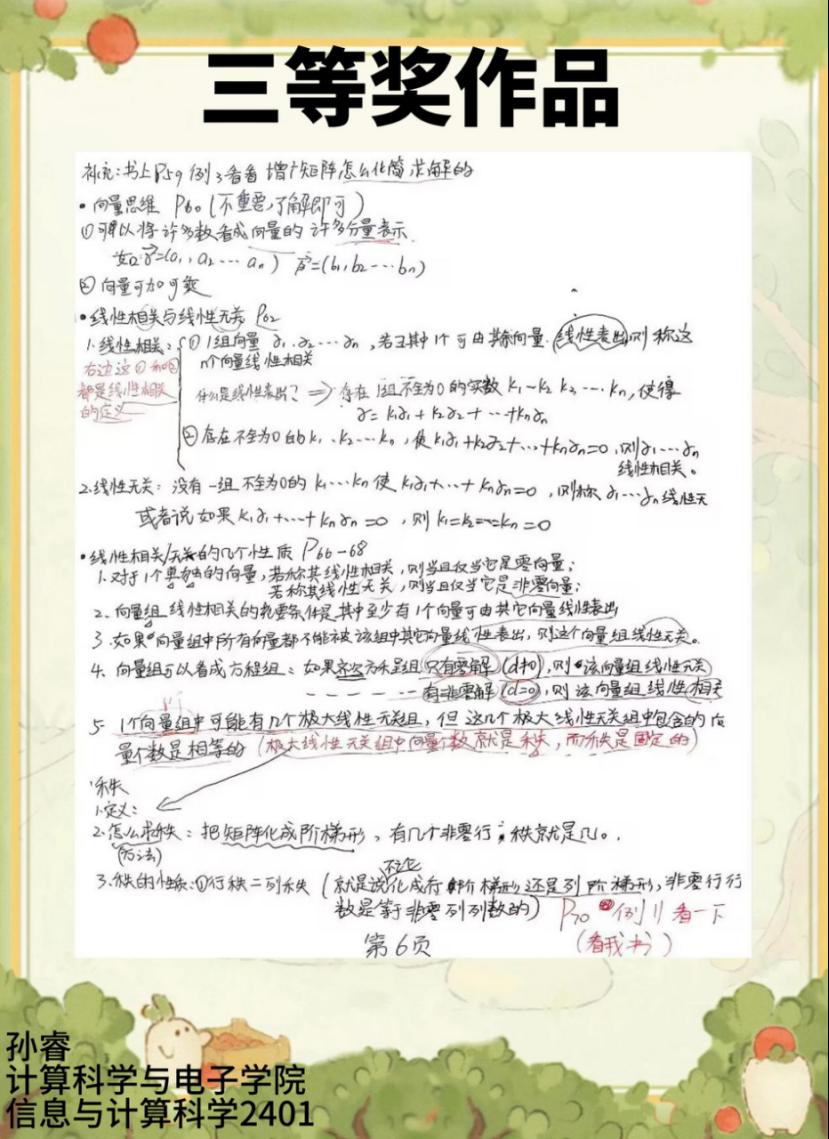 三等奖作品
补充:书上P59例3看看增广矩阵怎么化简求解的
·向量思维 P60(不重要,了解即可)
①可以将许多数看成向量的许多分量表示
如α=(a₁,a₂…aₙ) β=(b₁,b₂…bₙ)
②向量可加可乘
·线性相关与线性无关 P62
1.线性相关:①1组向量α₁、α₂…αₙ,若∃其中1个可由其余向量线性表出,则称这
n个向量线性相关
右边这①和②
都是线性相关
的定义
什么是线性表出了⇒存在1组不全为0的实数k₁-k₂ k₃…kₙ,使得
α=k₁α₁+k₂α₂+…+kₙαₙ
②存在不全为0的k₁、k₂…kₙ,使k₁α₁+k₂α₂+…+kₙαₙ=0,则α₁…αₙ
线性相关。
2.线性无关:没有一组不全为0的k₁…kₙ使k₁α₁+…+kₙαₙ=0,则称α₁…αₙ线性无
或者说如果k₁α₁+…+kₙαₙ=0,则k₁=k₂=…=kₙ=0
·线性相关/无关的几个性质 P66-68
1.对于1个单独的向量,若称其线性相关,则当且仅当它是零向量;
若称其线性无关,则当且仅当它是非零向量;
2.向量组线性相关的充要条件是其中至少有1个向量可由其它向量线性表出
3.如果向量组中所有向量都不能被该组中其它向量线性表出,则这个向量组线性无关。
4.向量组可以看成方程组:如果齐次方程组只有零解(d≠0),则该向量组线性无关
------有非零解(d=0),则该向量组线性相关
5.1个向量组中可能有几个极大线性无关组,但这几个极大线性无关组中包含的向
量个数是相等的(极大线性无关组中向量个数就是秩,而秩是固定的)
·秩
1.定义:
2.怎么求秩:把矩阵化成阶梯形,有几个非零行,秩就是几。
(方法)
3.秩的性质:①行秩=列秩(就是说不论化成行阶梯形还是列阶梯形,非零行行
数是等于非零列列数的) P70 例11看一下
(看我书)
第6页
孙睿
计算科学与电子学院
信息与计算科学2401